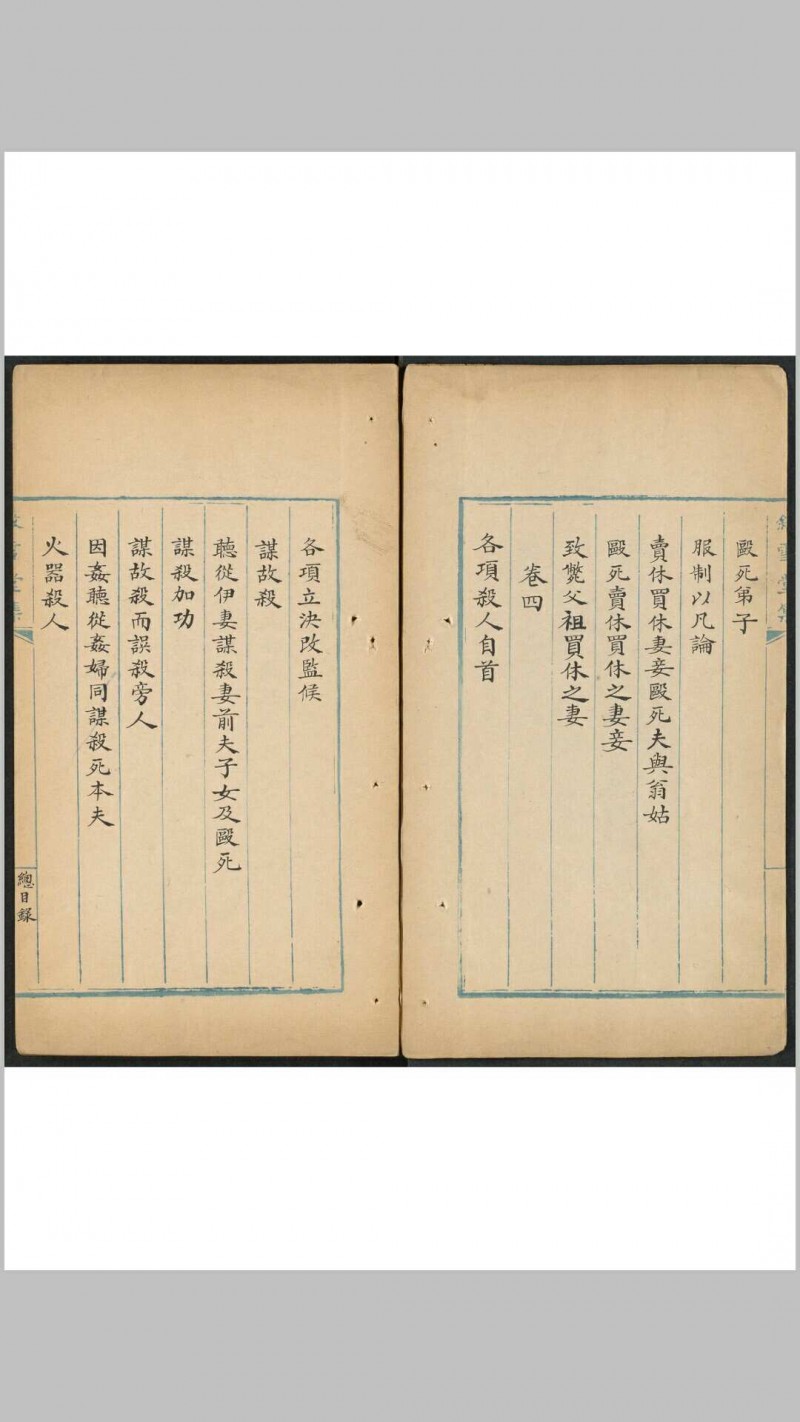 毆死弟子
服制以凡論
賣休買休妻妾毆死夫與翁姑
毆死賣休買休之妻妾
致斃父祖買休之妻
卷四
各項殺人自首
各項立決改監候
謀故殺
聽從伊妻謀殺妻前夫子女及毆死
謀殺加功
謀故殺而誤殺旁人
因姦聽從姦婦同謀殺死本夫
火器殺人
總目錄